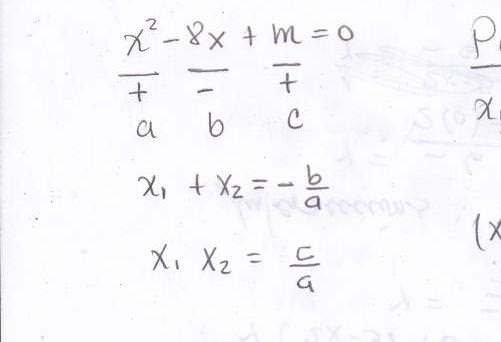 x² - 8x + m = 0
+ - +
a b c
x₁ + x₂ = - b/a
x₁ x₂ = c/a